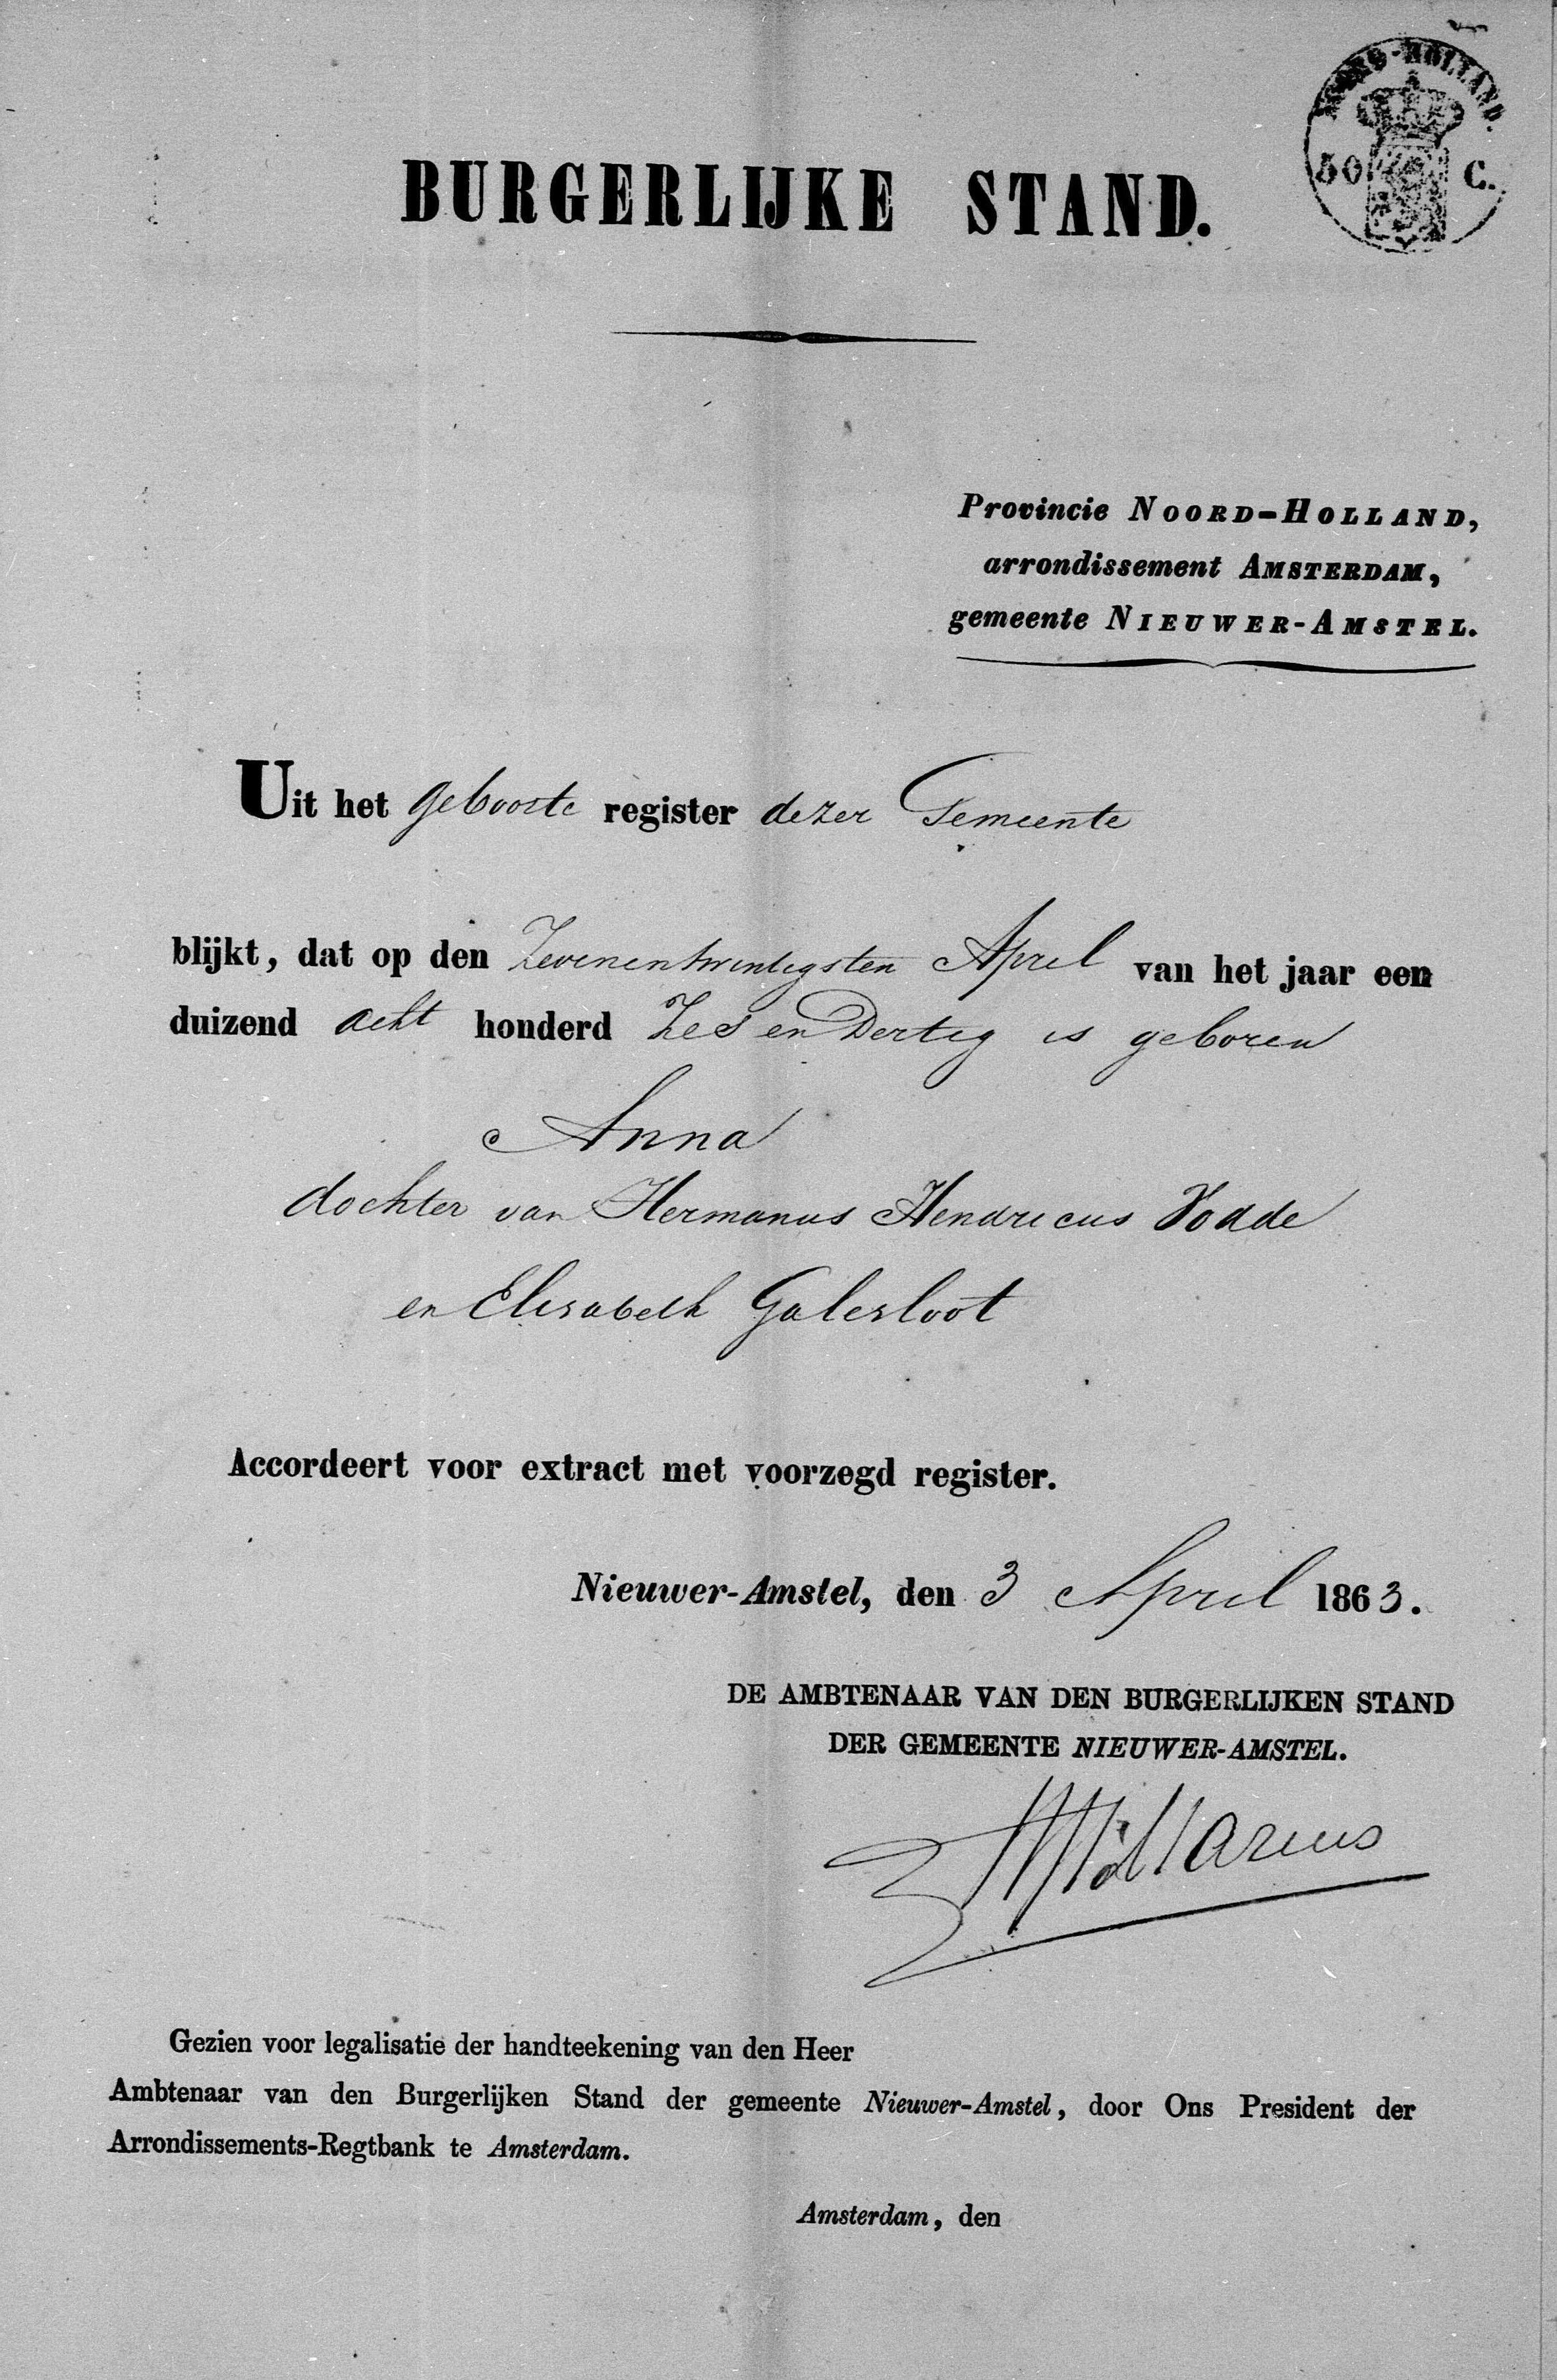 NOORD-HOLLAND.
50 C.
BURGERLIJKE STAND.
Provincie NOORD-HOLLAND,
arrondissement AMSTERDAM,
gemeente NIEUWER-AMSTEL.
Uit het geboorte register dezer Gemeente
blijkt, dat op den Zevenentwintigsten April van het jaar een
duizend acht honderd Zes en Dertig is geboren
Anna
dochter van Hermanus Hendricus Vodde
en Elisabeth Galesloot
Accordeert voor extract met voorzegd register.
Nieuwer-Amstel, den 3 April 1863.
DE AMBTENAAR VAN DEN BURGERLIJKEN STAND
DER GEMEENTE NIEUWER-AMSTEL.
Gezien voor legalisatie der handteekening van den Heer
Ambtenaar van den Burgerlijken Stand der gemeente Nieuwer-Amstel, door Ons President der
Arrondissements-Regtbank te Amsterdam.
Amsterdam, den